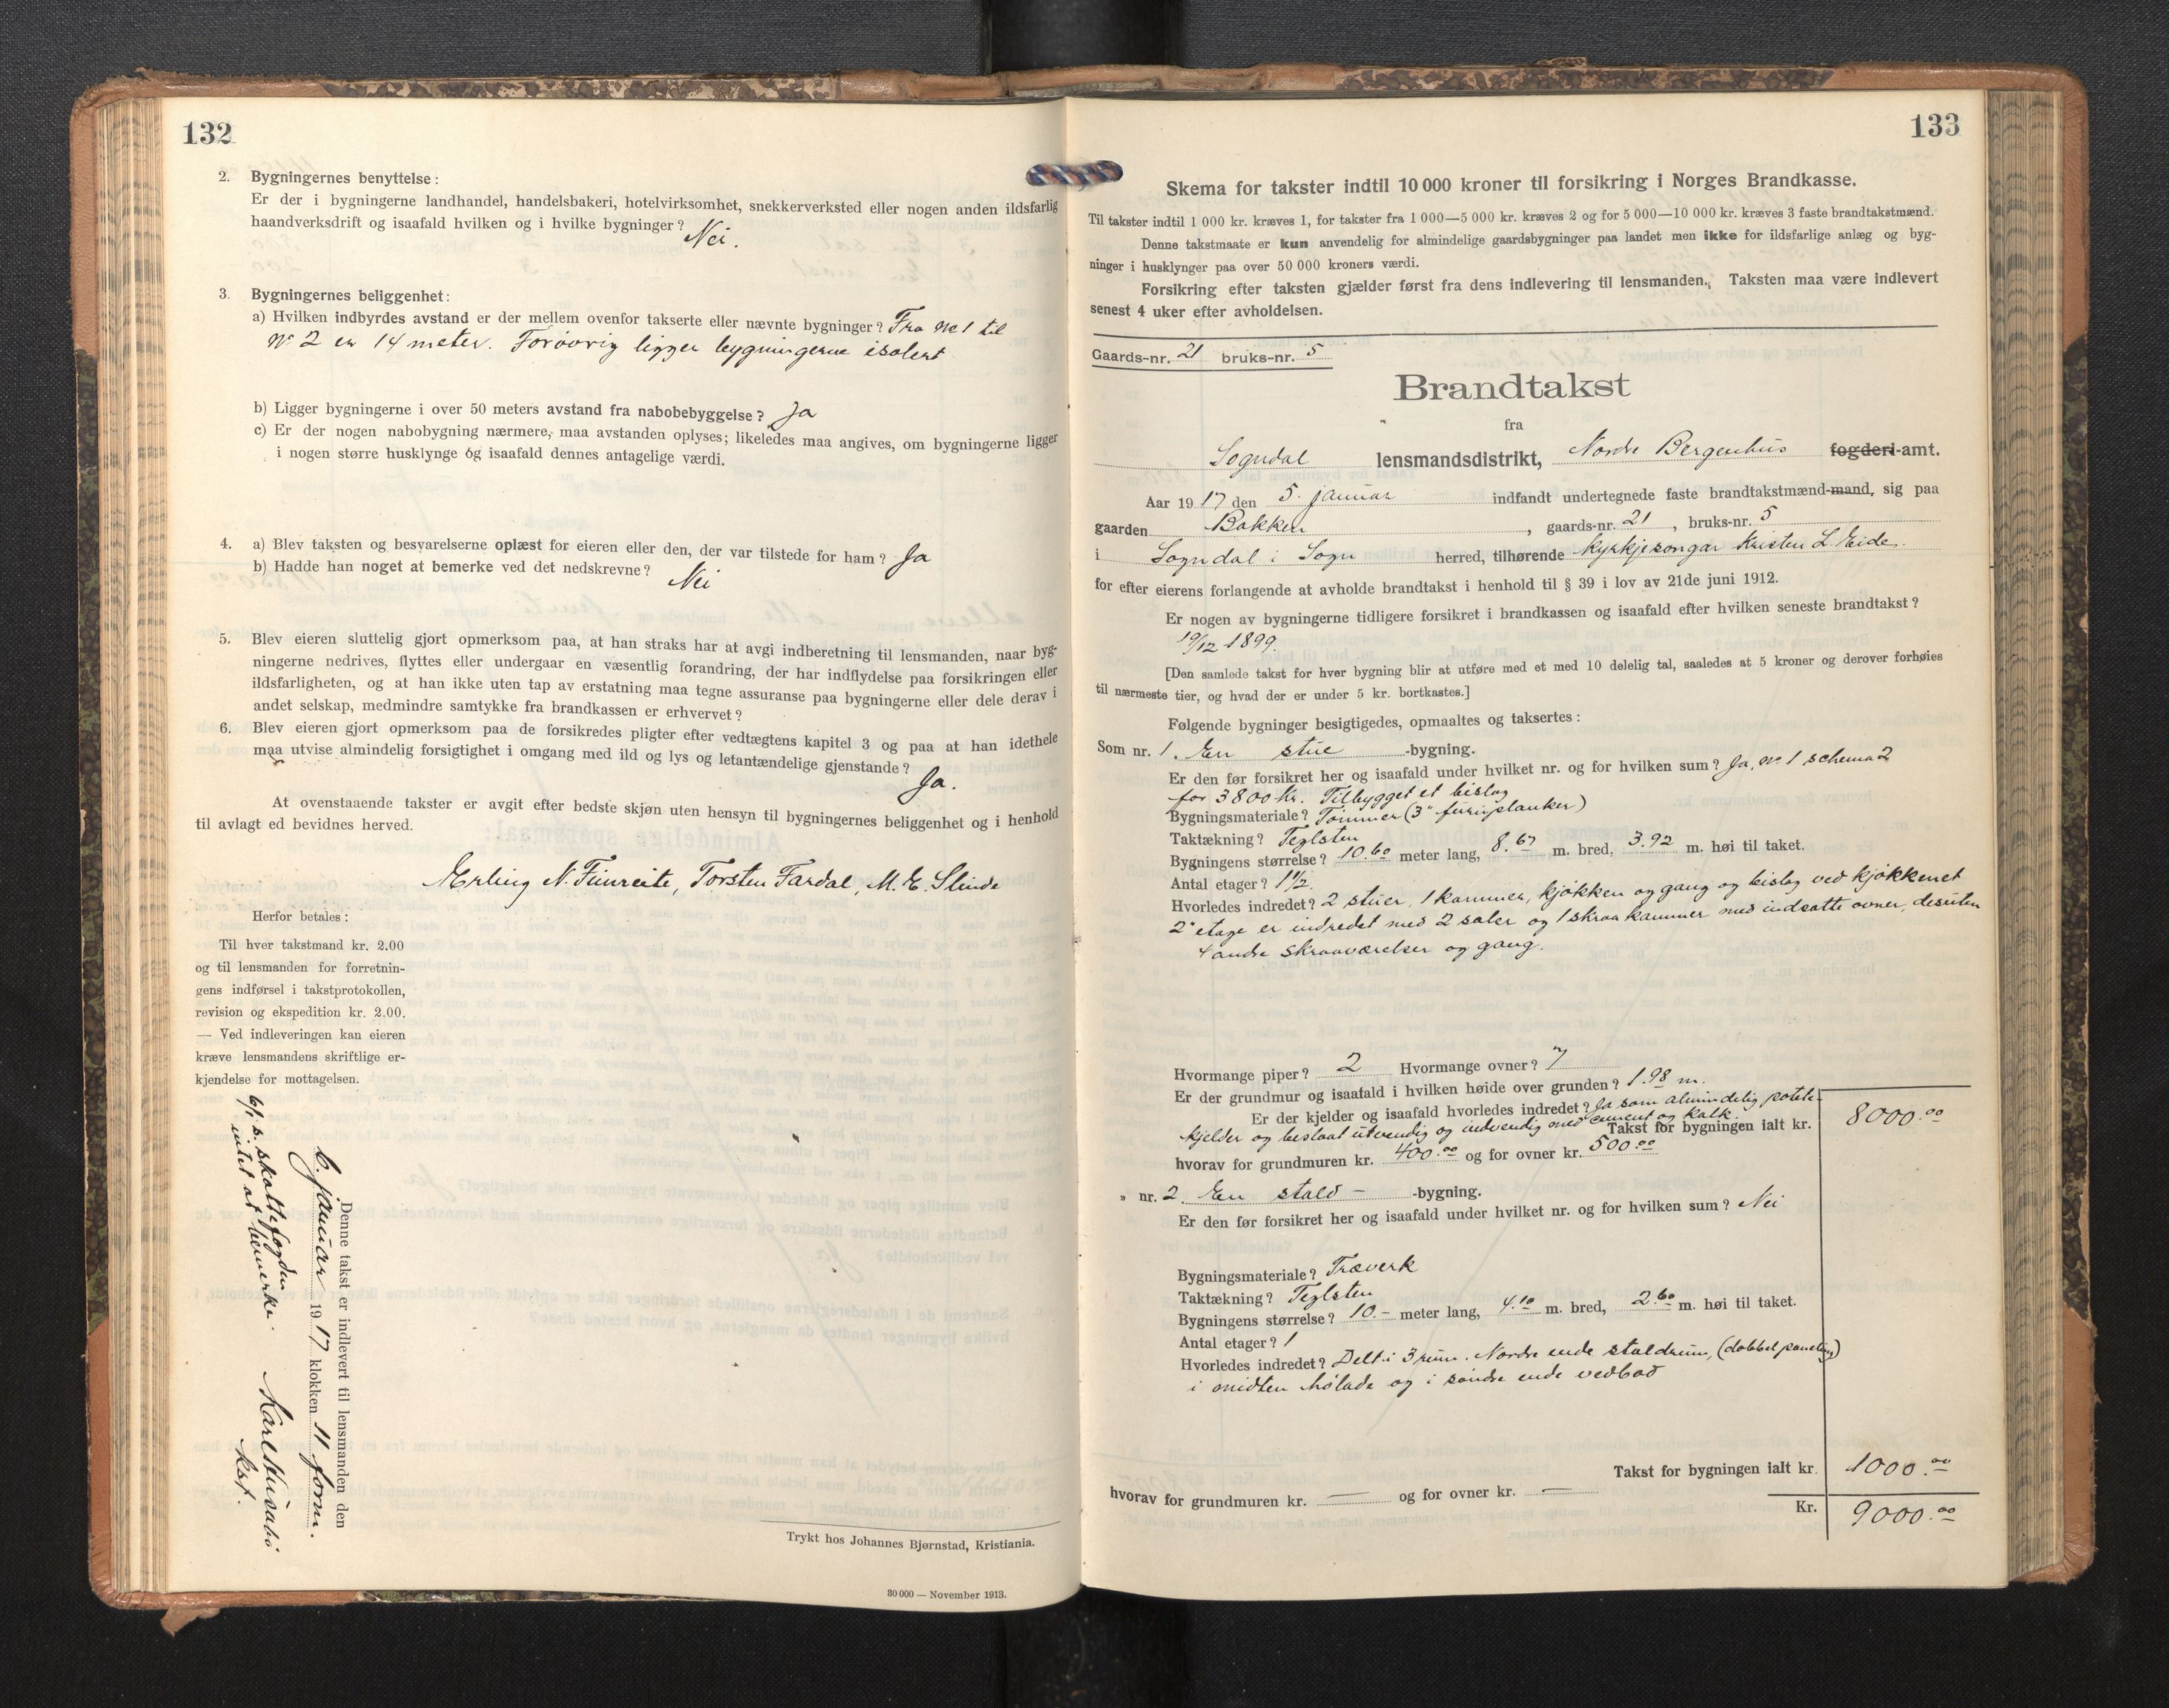 132
2. Bygningernes benyttelse:
Er der i bygningerne landhandel, handelsbakeri, hotelvirksomhet, snekkerverksted eller nogen anden ildsfarlig
haandverksdrift og isaafald hvilken og i hvilke bygninger? Nei.
3. Bygningernes beliggenhet:
a) Hvilken indbyrdes avstand er der mellem ovenfor takserte eller nævnte bygninger? Fra No 1 til
No 2 er 14 meter. Forøvrig ligger bygningerne isolert
b) Ligger bygningerne i over 50 meters avstand fra nabobebyggelse? Ja
c) Er der nogen nabobygning nærmere, maa avstanden oplyses; likeledes maa angives, om bygningerne ligger
i nogen større husklynge óg isaafald dennes antagelige værdi.
4. a) Blev taksten og besvarelserne oplæst for eieren eller den, der var tilstede for ham? Ja
b) Hadde han noget at bemerke ved det nedskrevne? Nei
5. Blev eieren sluttelig gjort opmerksom paa, at han straks har at avgi indberetning til lensmanden, naar byg-
ningerne nedrives, flyttes eller undergaar en væsentlig forandring, der har indflydelse paa forsikringen eller
ildsfarligheten, og at han ikke uten tap av erstatning maa tegne assuranse paa bygningerne eller dele derav i
andet selskap, medmindre samtykke fra brandkassen er erhvervet?
6. Blev eieren gjort opmerksom paa de forsikredes pligter efter vedtægtens kapitel 3 og paa at han idethele
maa utvise almindelig forsigtighet i omgang med ild og lys og letantændelige gjenstande?
Ja.
At ovenstaaende takster er avgit efter bedste skjøn uten hensyn til bygningernes beliggenhet og i henhold
til avlagt ed bevidnes herved.
Erling N. Fimreite, Torsten Fardal, M. E. Slinde
Herfor betales:
Til hver takstmand kr. 2.00
og til lensmanden for forretnin-
gens indførsel i takstprotokollen,
revision og ekspedition kr. 2.00.
— Ved indleveringen kan eieren
kræve lensmandens skriftlige er-
kjendelse for mottagelsen.
Denne takst er indlevert til lensmanden den
6. januar 1917 klokken 11 form.
6/1 s. skattefogden
intet at bemerke. Karl Husabö
ksf.
Trykt hos Johannes Bjørnstad, Kristiania.
30 000 — November 1913.
133
Skema for takster indtil 10 000 kroner til forsikring i Norges Brandkasse.
Til takster indtil 1 000 kr. kræves 1, for takster fra 1 000—5 000 kr. kræves 2 og for 5 000—10 000 kr. kræves 3 faste brandtakstmænd.
Denne takstmaate er kun anvendelig for almindelige gaardsbygninger paa landet men ikke for ildsfarlige anlæg og byg-
ninger i husklynger paa over 50 000 kroners værdi.
Forsikring efter taksten gjælder først fra dens indlevering til lensmanden. Taksten maa være indlevert
senest 4 uker efter avholdelsen.
Gaards-nr. 21 bruks-nr. 5
Brandtakst
fra
Sogndal lensmandsdistrikt, Nordre Bergenhus fogderi-amt.
Aar 1917 den 5. januar indfandt undertegnede faste brandtakstmænd-mand, sig paa
gaarden Bakken, gaards-nr. 21, bruks-nr. 5
i Sogndal i Sogn herred, tilhørende kyrkjesongar Kristen L. Eide.
for efter eierens forlangende at avholde brandtakst i henhold til § 39 i lov av 21de juni 1912.
Er nogen av bygningerne tidligere forsikret i brandkassen og isaafald efter hvilken seneste brandtakst?
19/12 1899.
[Den samlede takst for hver bygning blir at utføre med et med 10 delelig tal, saaledes at 5 kroner og derover forhøies
til nærmeste tier, og hvad der er under 5 kr. bortkastes.]
Følgende bygninger besigtigedes, opmaaltes og taksertes:
Som nr. 1. En stue -bygning.
Er den før forsikret her og isaafald under hvilket nr. og for hvilken sum? Ja, No 1 schema 2
for 3800 Kr. Tilbygget et bislag
Bygningsmateriale? Tömmer (3" furuplanker)
Taktækning? Teglsten
Bygningens størrelse? 10.60 meter lang, 8.67 m. bred, 3.92 m. høi til taket.
Antal etager? 1½.
Hvorledes indredet? 2 stuer, 1 kammer, kjøkken og gang og bislag ved kjøkkenet
2. etage er indredet med 2 saler og 1 skraakammer med indsatte ovner, desuten
4 andre skraaværelser og gang.
Hvormange piper? 2 Hvormange ovner? 7
Er der grundmur og isaafald i hvilken høide over grunden? 1.98 m.
Er der kjelder og isaafald hvorledes indredet? Ja som almindelig potet-
kjelder og beslaat utvendig og indvendig med cement og kalk.
Takst for bygningen ialt kr. 8000.00
hvorav for grundmuren kr. 400.00 og for ovner kr. 500.00
" nr. 2. En stald -bygning.
Er den før forsikret her og isaafald under hvilket nr. og for hvilken sum? Nei
Bygningsmateriale? Træverk
Taktækning? Teglsten
Bygningens størrelse? 10.- meter lang, 4.10 m. bred, 2.60 m. høi til taket.
Antal etager? 1
Hvorledes indredet? Delt i 3 rum. Nordre ende staldrum, (dobbel paneling)
i midten hölade og i söndre ende vedbod
Takst for bygningen ialt kr. 1000.00
hvorav for grundmuren kr. — og for ovner kr. —
Kr. 9000.00